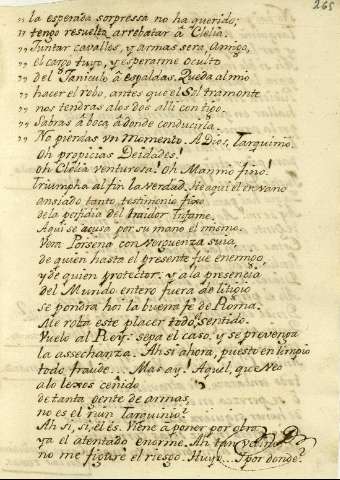 265
" la esperada sorpressa no ha querido;
" tengo resuelto arrebatar â Clelia.
" Juntar cavallos, y armas sera, Amigo,
" el cargo tuyo, y esperarme oculto
" del Janiculo â espaldas. Queda al mio
" hacer el robo. antes que el Sol tramonte
" nos tendras a los dos alli contigo.
" Sabras â Loca, â donde conducirla.
" No pierdas vn momento. A Dios, Tarquinio.
Oh propicias Deidades!
oh Clelia venturosa! Oh Mannio fino!
Triumpha al fin la verdad. He aqui el en vano
ansiado tanto, testimonio fixo
de la perfidia del traidor Infame.
Aqui se acusa por su mano el mismo.
Vera Porsena con verguenza suia,
de quien hasta el presente fue enemigo
y de quien protector. y a la presencia
del Mundo entero fuera de litigio
se pondra hoi la buena fe de Roma.
Me roba este placer todo sentido.
Vuelo al Rey: sepa el caso, y se prevenga
la assechanza. Ah si ahora, puesto en limpio
todo fraude... Mas ay! Aquel, que veo
a lo lexos ceñido
de tanta gente de armas,
no es el ruin Tarquinio?
Ah si, si, el es. Viene â poner por obra
ya el atentado enorme. Ah tan
no me figurè el riesgo. Huyo... Y por donde?